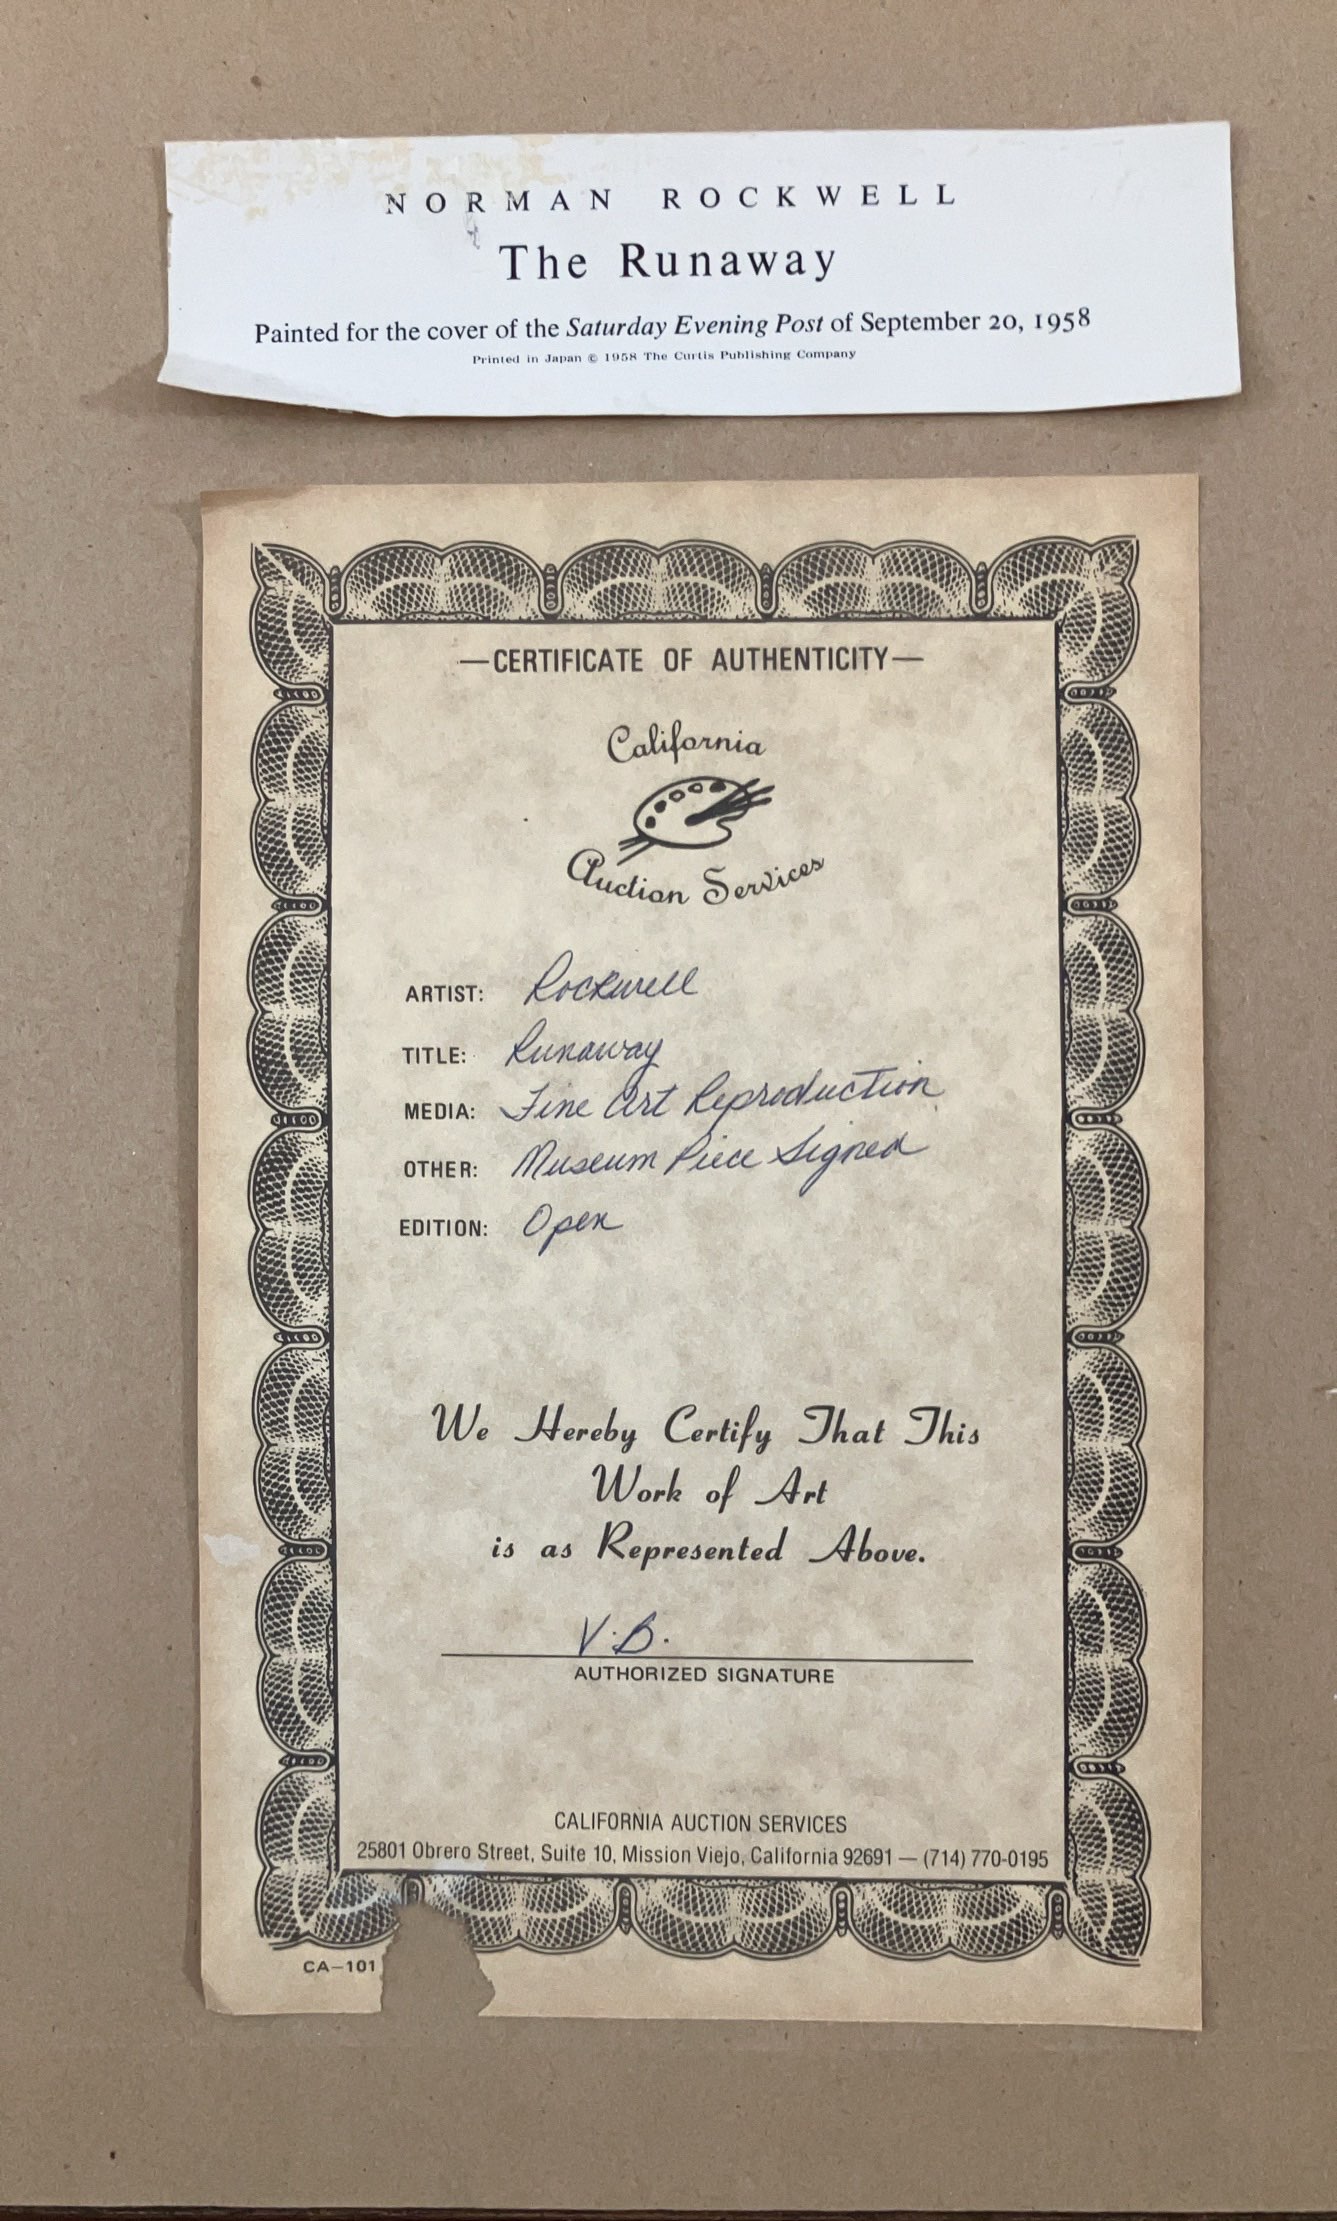 NORMAN ROCKWELL
The Runaway
Painted for the cover of the Saturday Evening Post of September 20, 1958
Printed in Japan © 1958 The Curtis Publishing Company
—CERTIFICATE OF AUTHENTICITY—
California
Auction Services
ARTIST: Rockwell
TITLE: Runaway
MEDIA: Fine Art Reproduction
OTHER: Museum Piece Signed
EDITION: Open
We Hereby Certify That This
Work of Art
is as Represented Above.
V.B.
AUTHORIZED SIGNATURE
CALIFORNIA AUCTION SERVICES
25801 Obrero Street, Suite 10, Mission Viejo, California 92691 — (714) 770-0195
CA—101